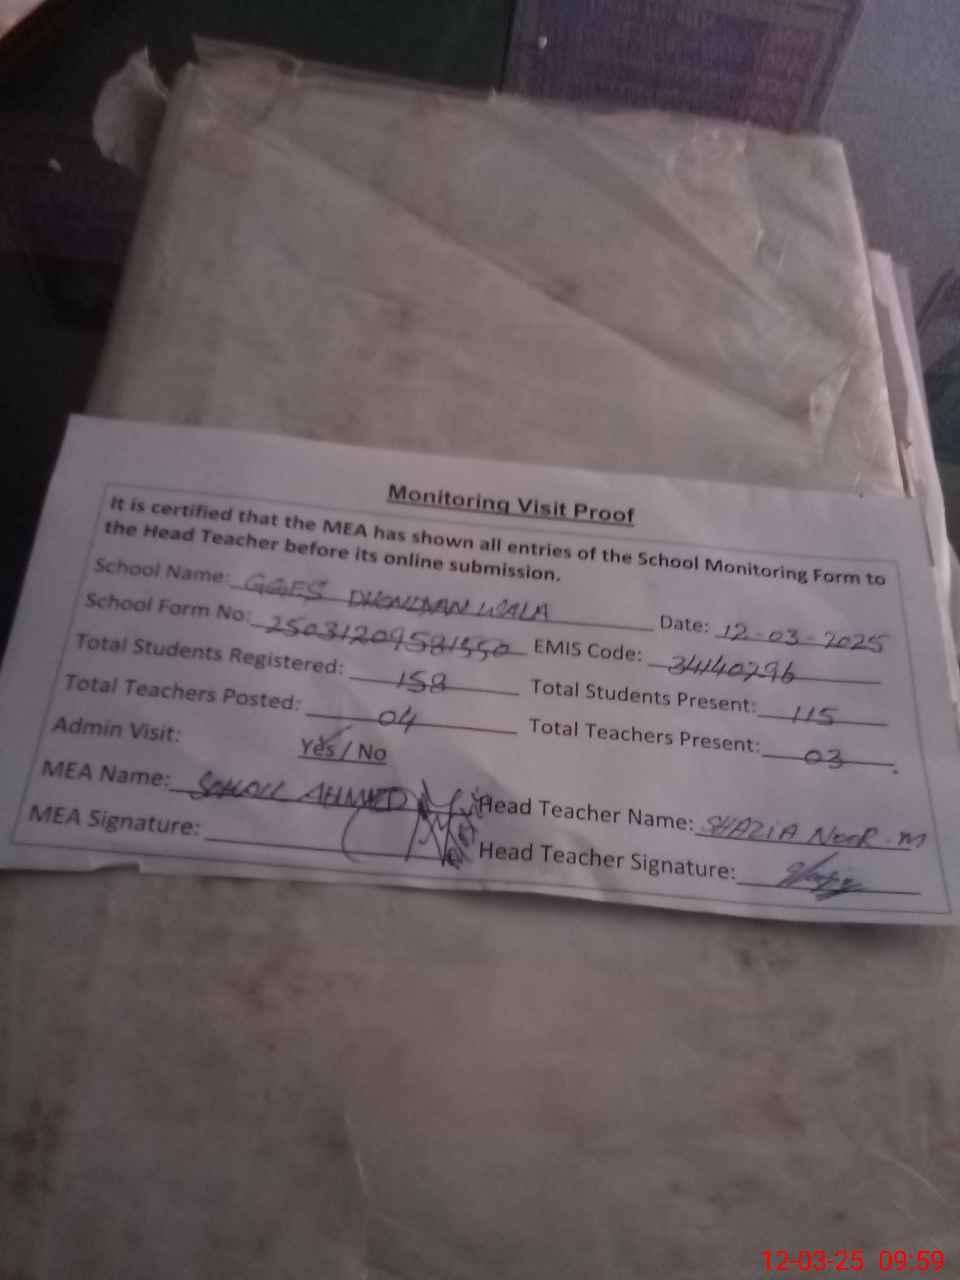 Monitoring Visit Proof
It is certified that the MEA has shown all entries of the School Monitoring Form to
the Head Teacher before its online submission.
School Name: GGES Date: 12-03-2025
School Form No: 25031209581550 EMIS Code: 34440296
Total Students Registered: 158 Total Students Present: 115
Total Teachers Posted: 04 Total Teachers Present: 03.
Admin Visit: Yes / No
MEA Name: SOHAIL AHMED Head Teacher Name: SHAZIA NOOR. M
MEA Signature: Head Teacher Signature:
12-03-25 09:59